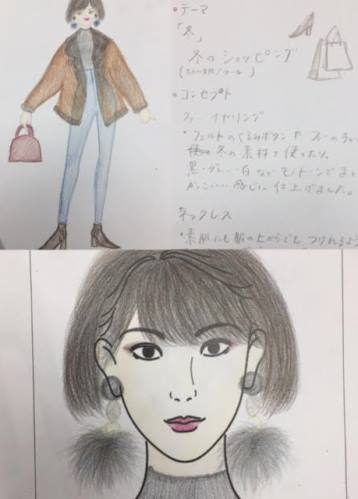 ・テーマ
「冬」
冬のショッピング
・コンセプト
ファーイヤリング
・フェルトのくるみボタンや ファーの
冬の素材を使ったり。
黒・グレー・白などモノトーンでまと
かっこいい感じに仕上げました。
ネックレス
・素肌にも服の上からでも つけれるよう